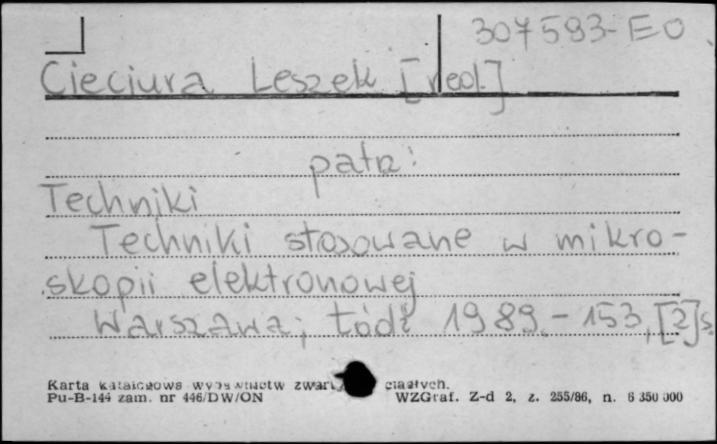 307593-EO
Cieciura Leszek [red.]
patrz:
Techniki
Techniki stosowane w mikro-
skopii elektronowej
Warszawa; Łódź 1989.-153,[2]s.
Karta katalogowa wydawnictw ciągłych.
Pu-B-144 zam. nr 446/DW/ON WZGraf. Z-d 2, z. 255/86, n. 6 350 000